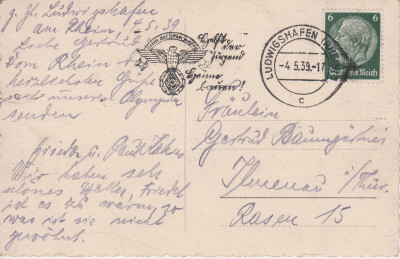 g. Zt. Ludwigshafen
am Rhein, 4.5.39
Liebe Gertrud
Vom Rhein die
herzlichsten Grüße
senden
Frieda u. Paul
Wir haben sehr
schönes Wetter, Friedel
ist es zu warm, so
was ist sie nicht
gewöhnt.
Helft
der
Jugend
Heime
bauen!
LUDWIGSHAFEN
- 4.5.39.-17
c
6 6
Deutsches Reich
Fräulein
Gertrud Baumgärtner
Ilmenau i/Thür.
Rasen 15